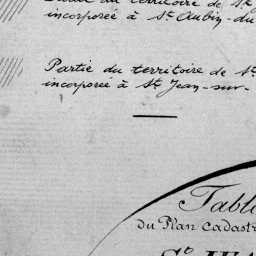 du territoire de St
incorporée à St Aubin-du
Partie du territoire de St
incorporée à St Jean-sur-
Table
du Plan Cadast